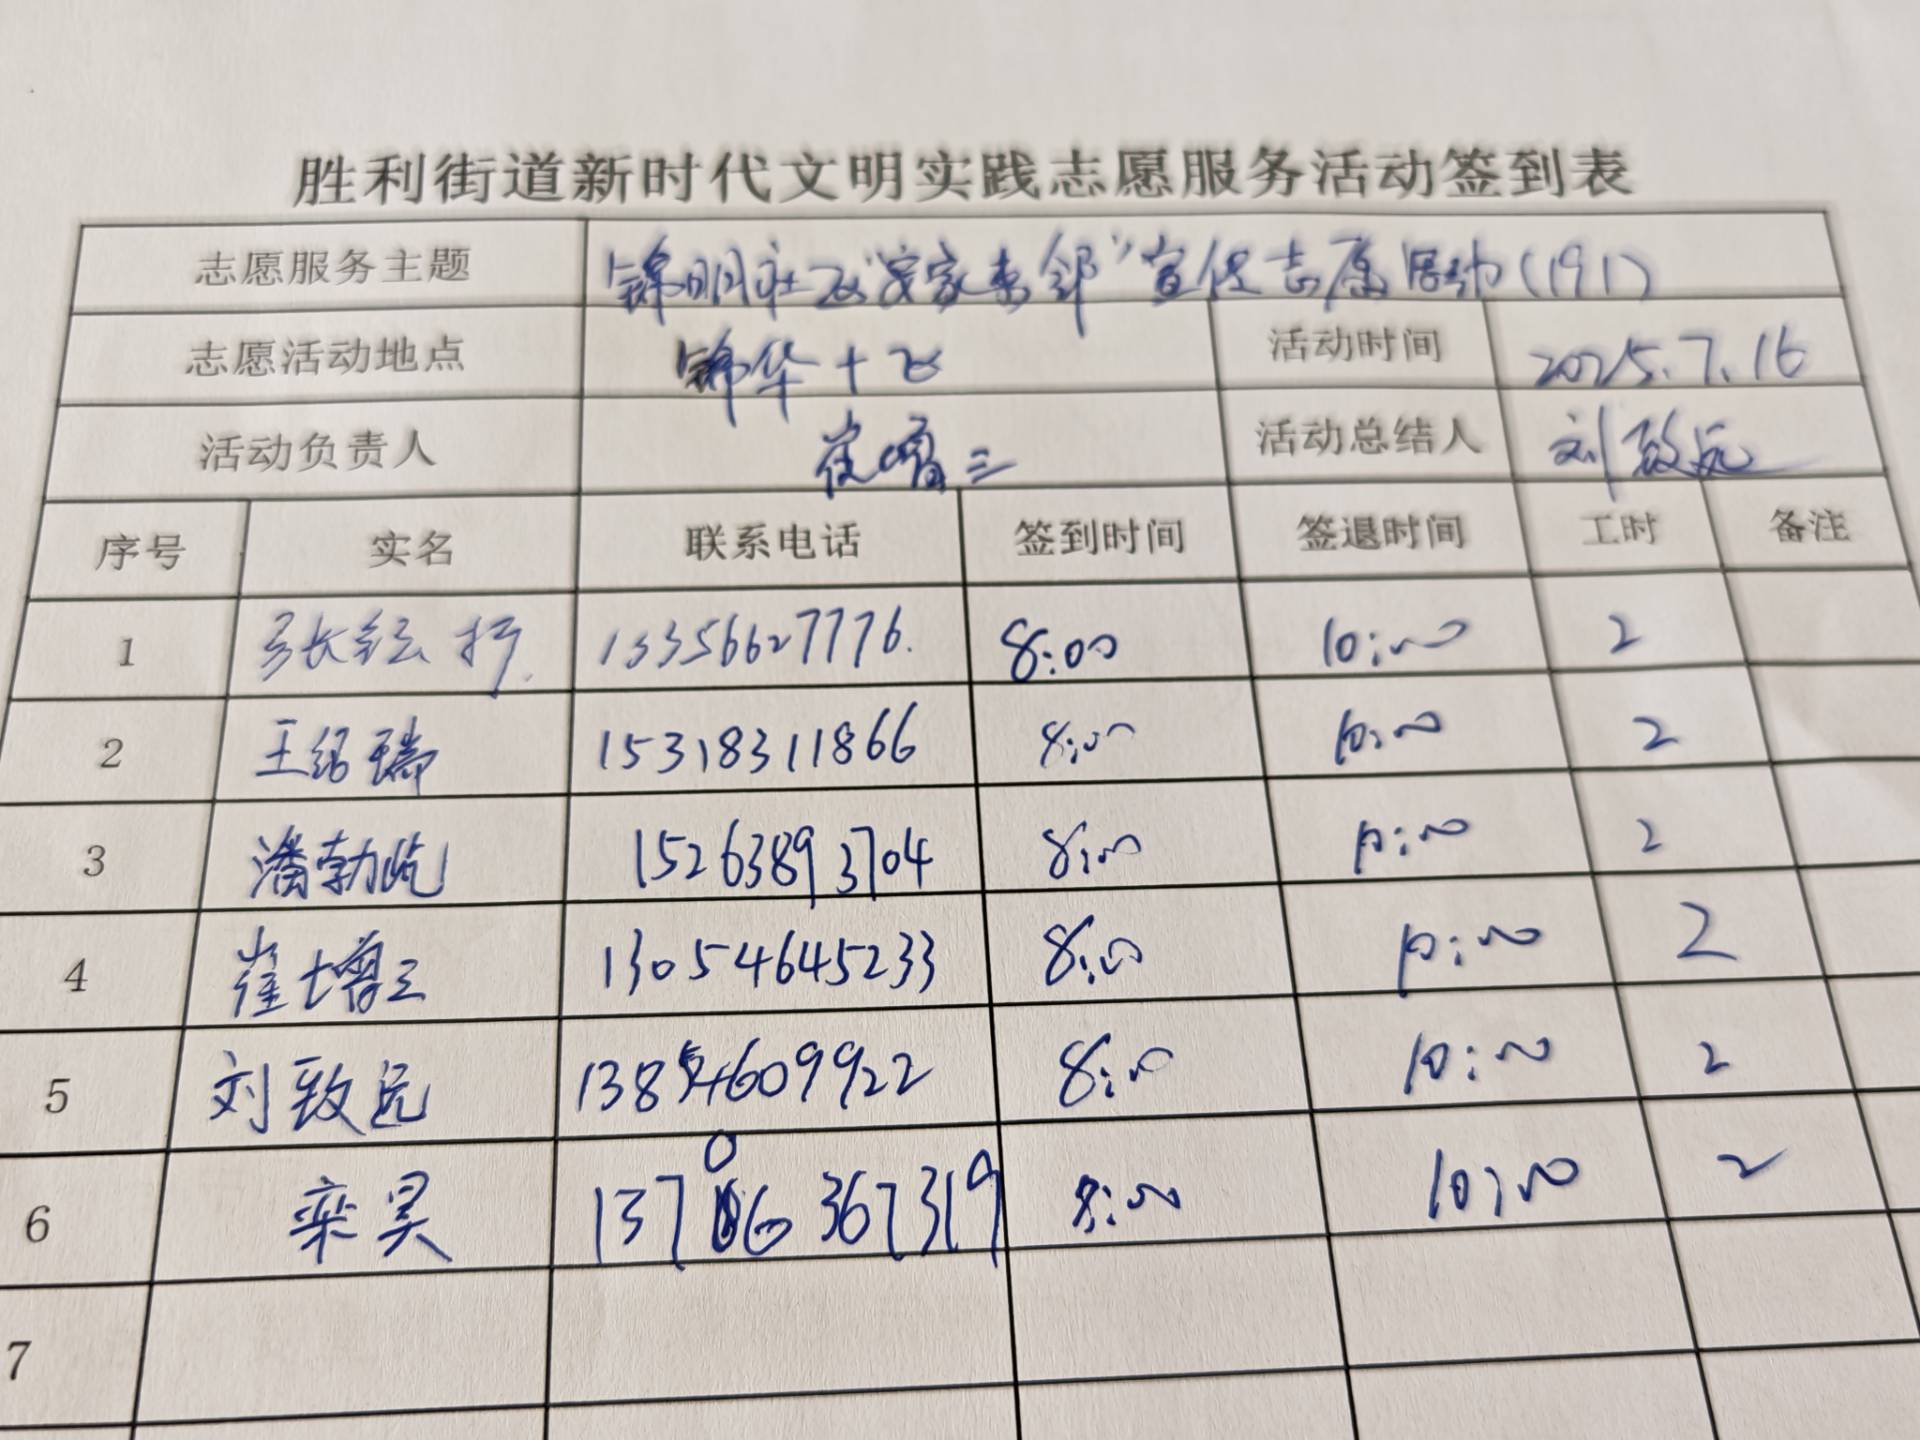 胜利街道新时代文明实践志愿服务活动签到表
志愿服务主题 锦明社区"安家惠邻"宣传志愿活动(191)
志愿活动地点 锦华十区 活动时间 2025.7.16
活动负责人 崔增三 活动总结人 刘致远
序号 实名 联系电话 签到时间 签退时间 工时 备注
1 13356627776. 8:00 10:00 2
2 王绍瑞 15318311866 8:00 10:00 2
3 潘勃屹 15263893704 8:00 10:00 2
4 崔增三 13054645233 8:00 10:00 2
5 刘致远 13854609922 8:00 10:00 2
6 栾昊 13706367319 8:00 10:00 2
7